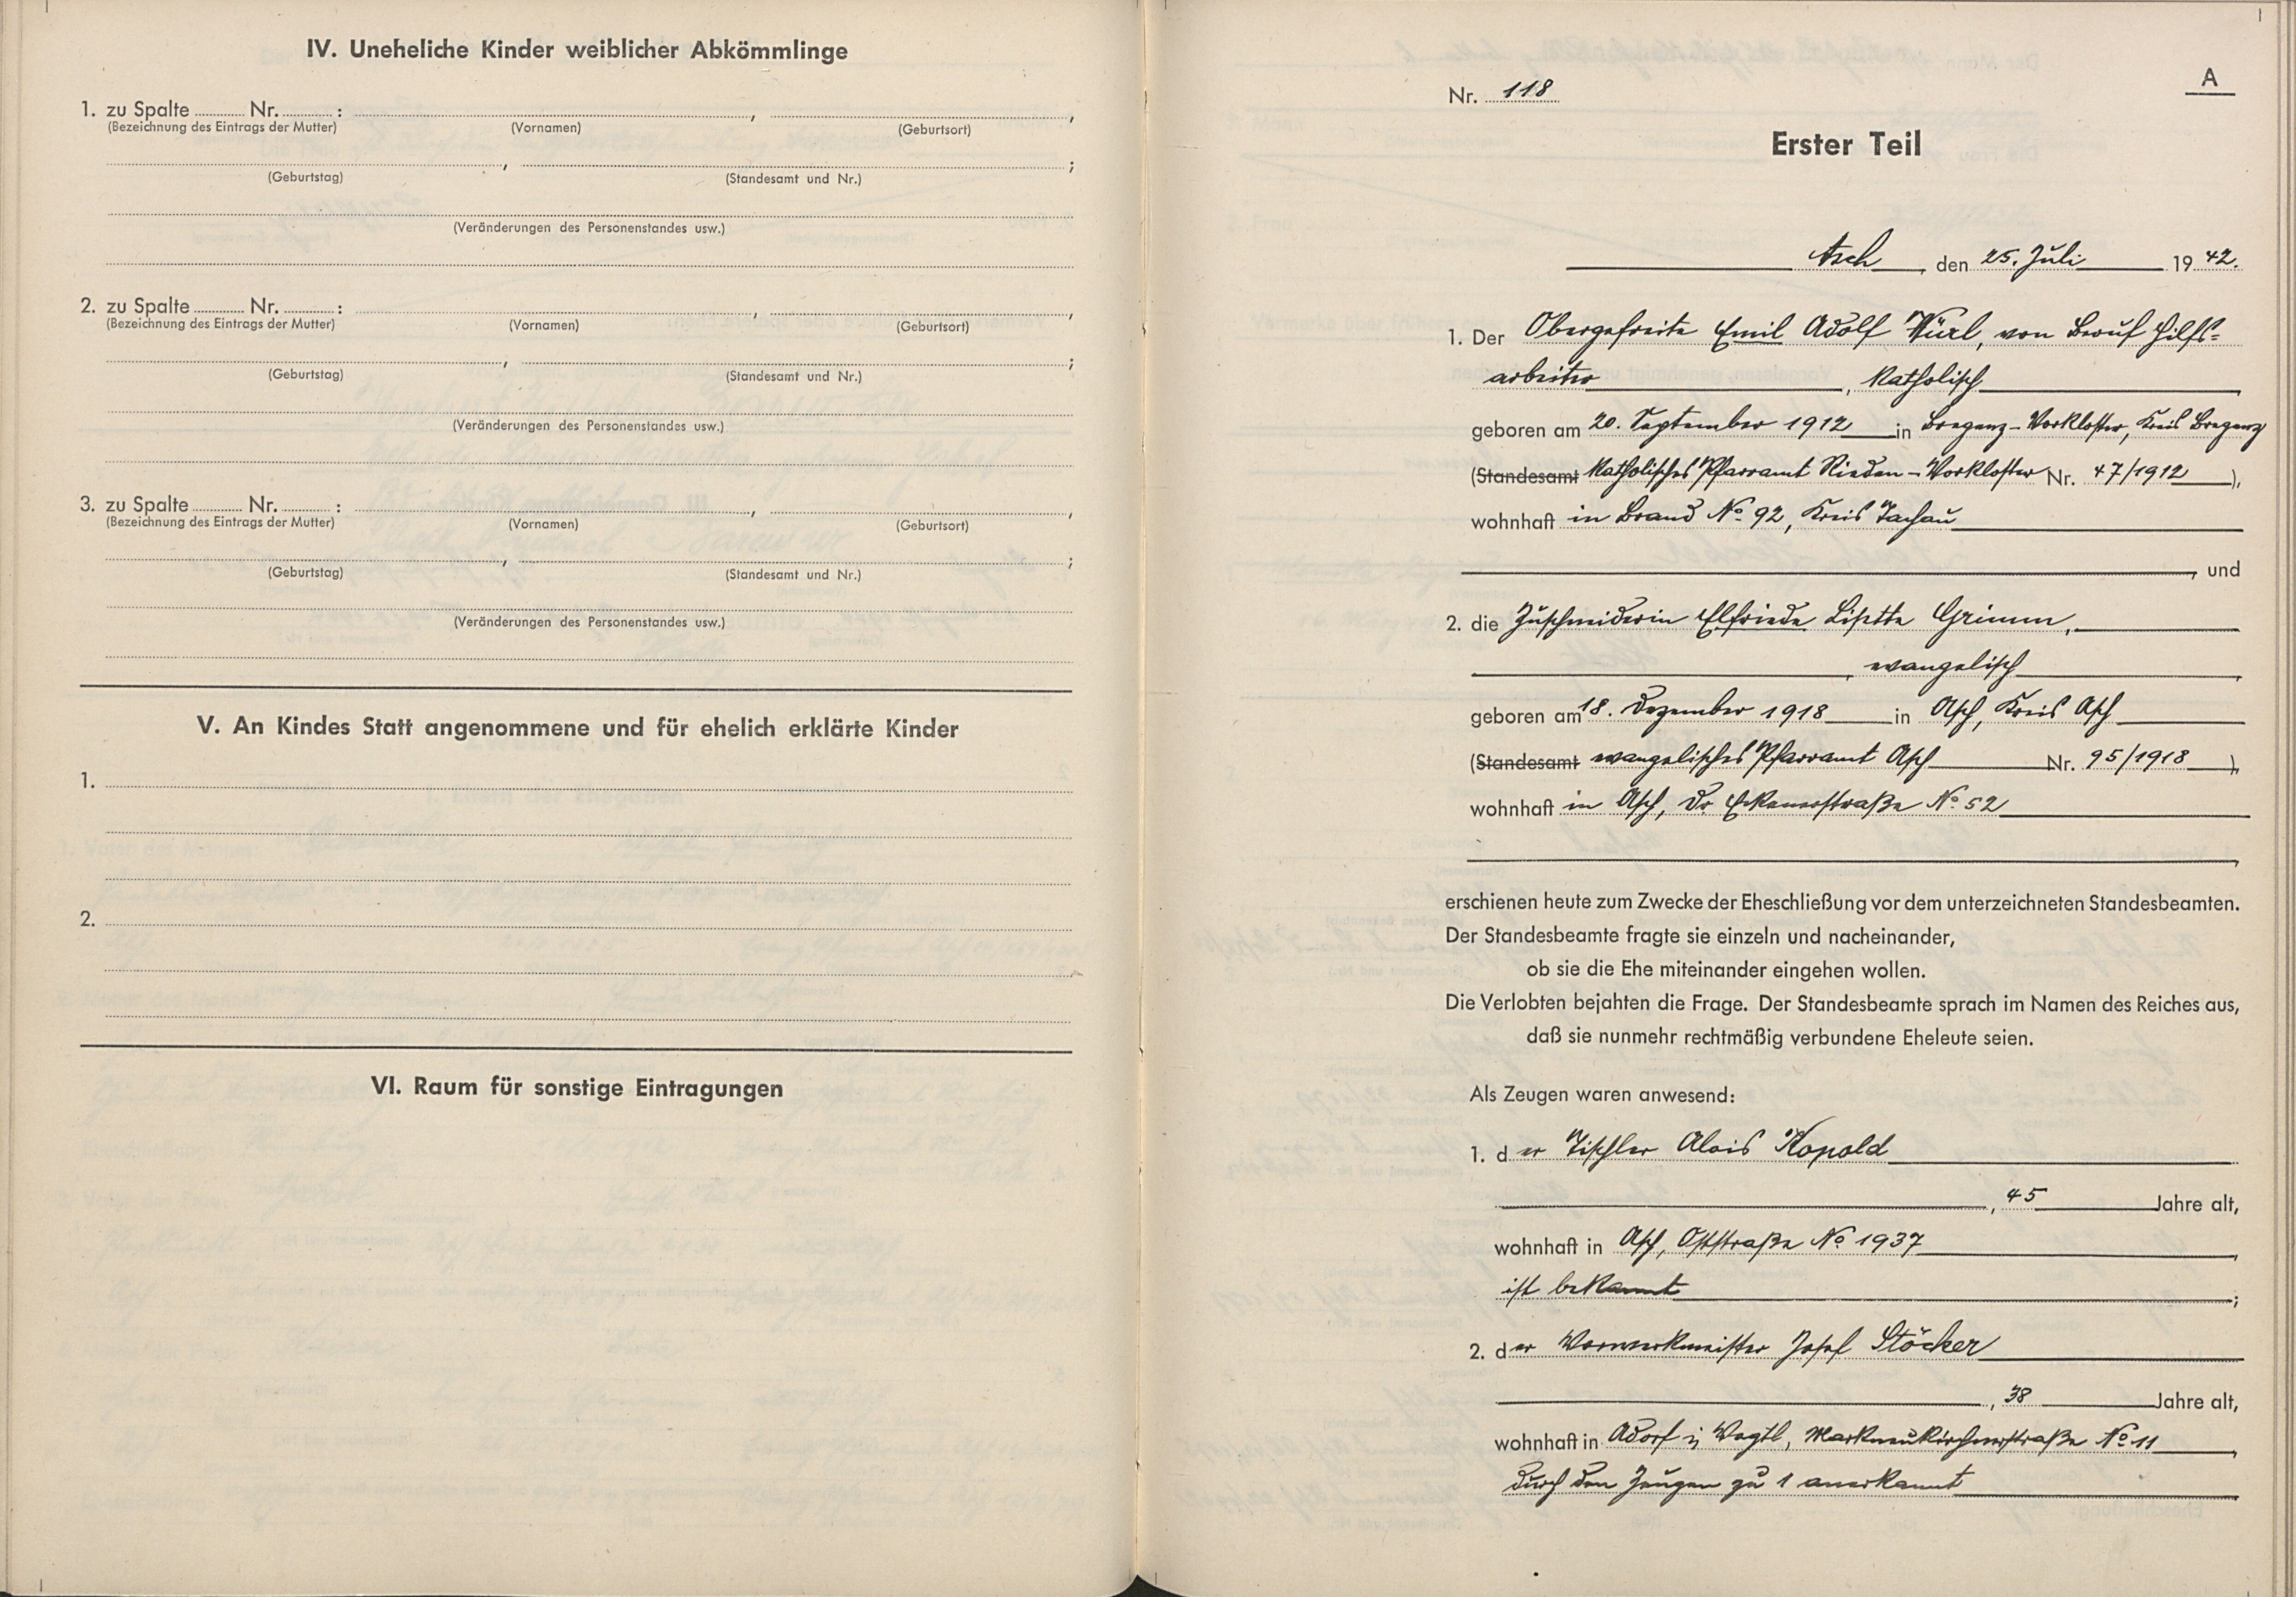 IV. Uneheliche Kinder weiblicher Abkömmlinge
1. zu Spalte ........ Nr. ........ : ........ , ........ ,
(Bezeichnung des Eintrags der Mutter) (Vornamen) (Geburtsort)
........ , ........ ;
(Geburtstag) (Standesamt und Nr.)
(Veränderungen des Personenstandes usw.)
2. zu Spalte ........ Nr. ........ : ........ , ........ ,
(Bezeichnung des Eintrags der Mutter) (Vornamen) (Geburtsort)
........ , ........ ;
(Geburtstag) (Standesamt und Nr.)
(Veränderungen des Personenstandes usw.)
3. zu Spalte ........ Nr. ........ : ........ , ........ ,
(Bezeichnung des Eintrags der Mutter) (Vornamen) (Geburtsort)
........ , ........ ;
(Geburtstag) (Standesamt und Nr.)
(Veränderungen des Personenstandes usw.)
V. An Kindes Statt angenommene und für ehelich erklärte Kinder
1.
2.
VI. Raum für sonstige Eintragungen
A
Nr. 118
Erster Teil
Asch, den 25. Juli 1942.
1. Der Obergefreite Emil Adolf Würl, von Beruf Hilfs=
arbeiter, katholisch
geboren am 20. September 1912 in Bregenz-Vorkloster, Kreis Bregenz
(Standesamt Katholisches Pfarramt Rieden-Vorkloster Nr. 47/1912),
wohnhaft in Brand No 92, Kreis Tachau
, und
2. die Zuschneiderin Elfriede Lisette Grimm,
, evangelisch,
geboren am 18. Dezember 1918 in Asch, Kreis Asch
(Standesamt evangelisches Pfarramt Asch Nr. 95/1918),
wohnhaft in Asch, Dr. Eckenerstraße No 52
erschienen heute zum Zwecke der Eheschließung vor dem unterzeichneten Standesbeamten.
Der Standesbeamte fragte sie einzeln und nacheinander,
ob sie die Ehe miteinander eingehen wollen.
Die Verlobten bejahten die Frage. Der Standesbeamte sprach im Namen des Reiches aus,
daß sie nunmehr rechtmäßig verbundene Eheleute seien.
Als Zeugen waren anwesend:
1. der Tischler Alois Kopold
, 45 Jahre alt,
wohnhaft in Asch, Oststraße No 1937,
ist bekannt;
2. der Vorwerkmeister Josef Stöcker
, 38 Jahre alt,
wohnhaft in Adorf i. Vogtl., Markneukirchnerstraße No 11,
durch den Zeugen zu 1 anerkannt